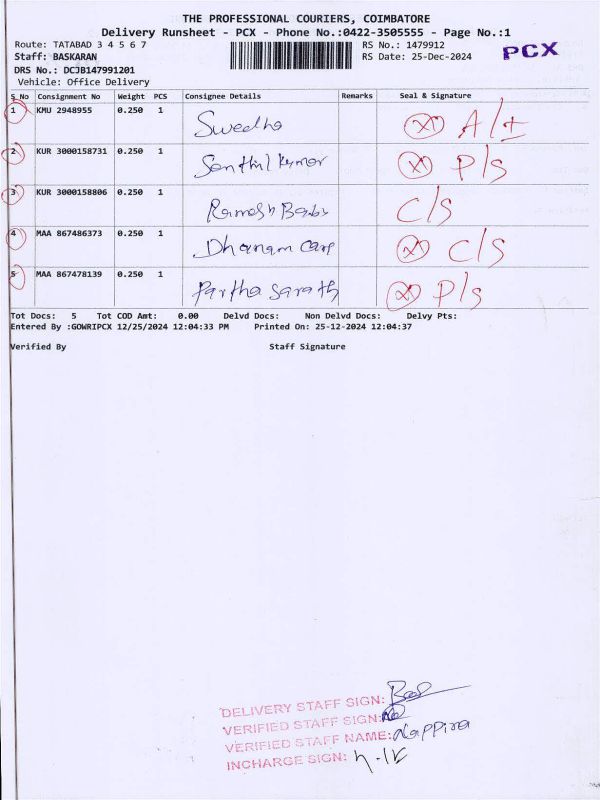 THE PROFESSIONAL COURIERS, COIMBATORE
Delivery Runsheet - PCX - Phone No.:0422-3505555 - Page No.:1
Route: TATABAD 3 4 5 6 7 RS No.: 1479912
Staff: BASKARAN RS Date: 25-Dec-2024 PCX
DRS No.: DCJB147991201
Vehicle: Office Delivery
S No Consignment No Weight PCS Consignee Details Remarks Seal & Signature
1 KMU 2948955 0.250 1 Swedha
2 KUR 3000158731 0.250 1 Senthil kumar P/s
3 KUR 3000158806 0.250 1 Ramesh Babu C/s
4 MAA 867486373 0.250 1 Dhanam care C/s
5 MAA 867478139 0.250 1 Partha sarath P/s
Tot Docs: 5 Tot COD Amt: 0.00 Delvd Docs: Non Delvd Docs: Delvy Pts:
Entered By :GOWRIPCX 12/25/2024 12:04:33 PM Printed On: 25-12-2024 12:04:37
Verified By Staff Signature
DELIVERY STAFF SIGN:
VERIFIED STAFF SIGN:
VERIFIED STAFF NAME:
INCHARGE SIGN: